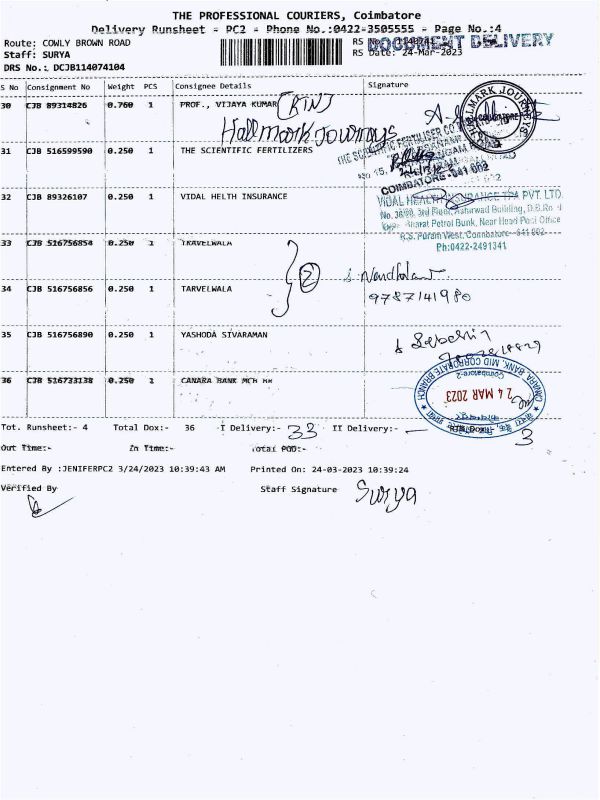 THE PROFESSIONAL COURIERS, Coimbatore
Delivery Runsheet - PC2 - Phone No.:0422-3505555 - Page No.:4
DOCUMENT DELIVERY
Route: COWLY BROWN ROAD
Staff: SURYA RS Date: 24-Mar-2023
DRS No.: DCJB114074104
S No Consignment No Weight PCS Consignee Details Signature
30 CJB 89314826 0.760 1 PROF., VIJAYA KUMAR (RTN)
Hallmark Journeys
HALLMARK JOURNEYS
COIMBATORE
31 CJB 516599590 0.250 1 THE SCIENTIFIC FERTILIZERS
THE SCIENTIFIC FERTILISER CO
COIMBATORE-641 002
32 CJB 89326107 0.250 1 VIDAL HELTH INSURANCE
VIDAL HEALTH INSURANCE TPA PVT. LTD.
No. 36/99, 3rd Floor, Ashirwad Building, D.B.Ro
Bharat Petrol Bunk, Near Head Post Office
R.S. Puram West, Coimbatore - 641 002
Ph:0422-2491341
33 CJB 516756854 0.250 1 TRAVELWALA
2
34 CJB 516756856 0.250 1 TARVELWALA
9787141980
35 CJB 516756890 0.250 1 YASHODA SIVARAMAN
36 CJB 516733138 0.250 1 CANARA BANK MCH
CANARA BANK, MID CORPORATE BRANCH
Coimbatore-2
24 MAR 2023
Tot. Runsheet:- 4 Total Dox:- 36 I Delivery:- 33 II Delivery:- — 3
Out Time:- In Time:- Total POD:-
Entered By :JENIFERPC2 3/24/2023 10:39:43 AM Printed On: 24-03-2023 10:39:24
Verified By Staff Signature Surya